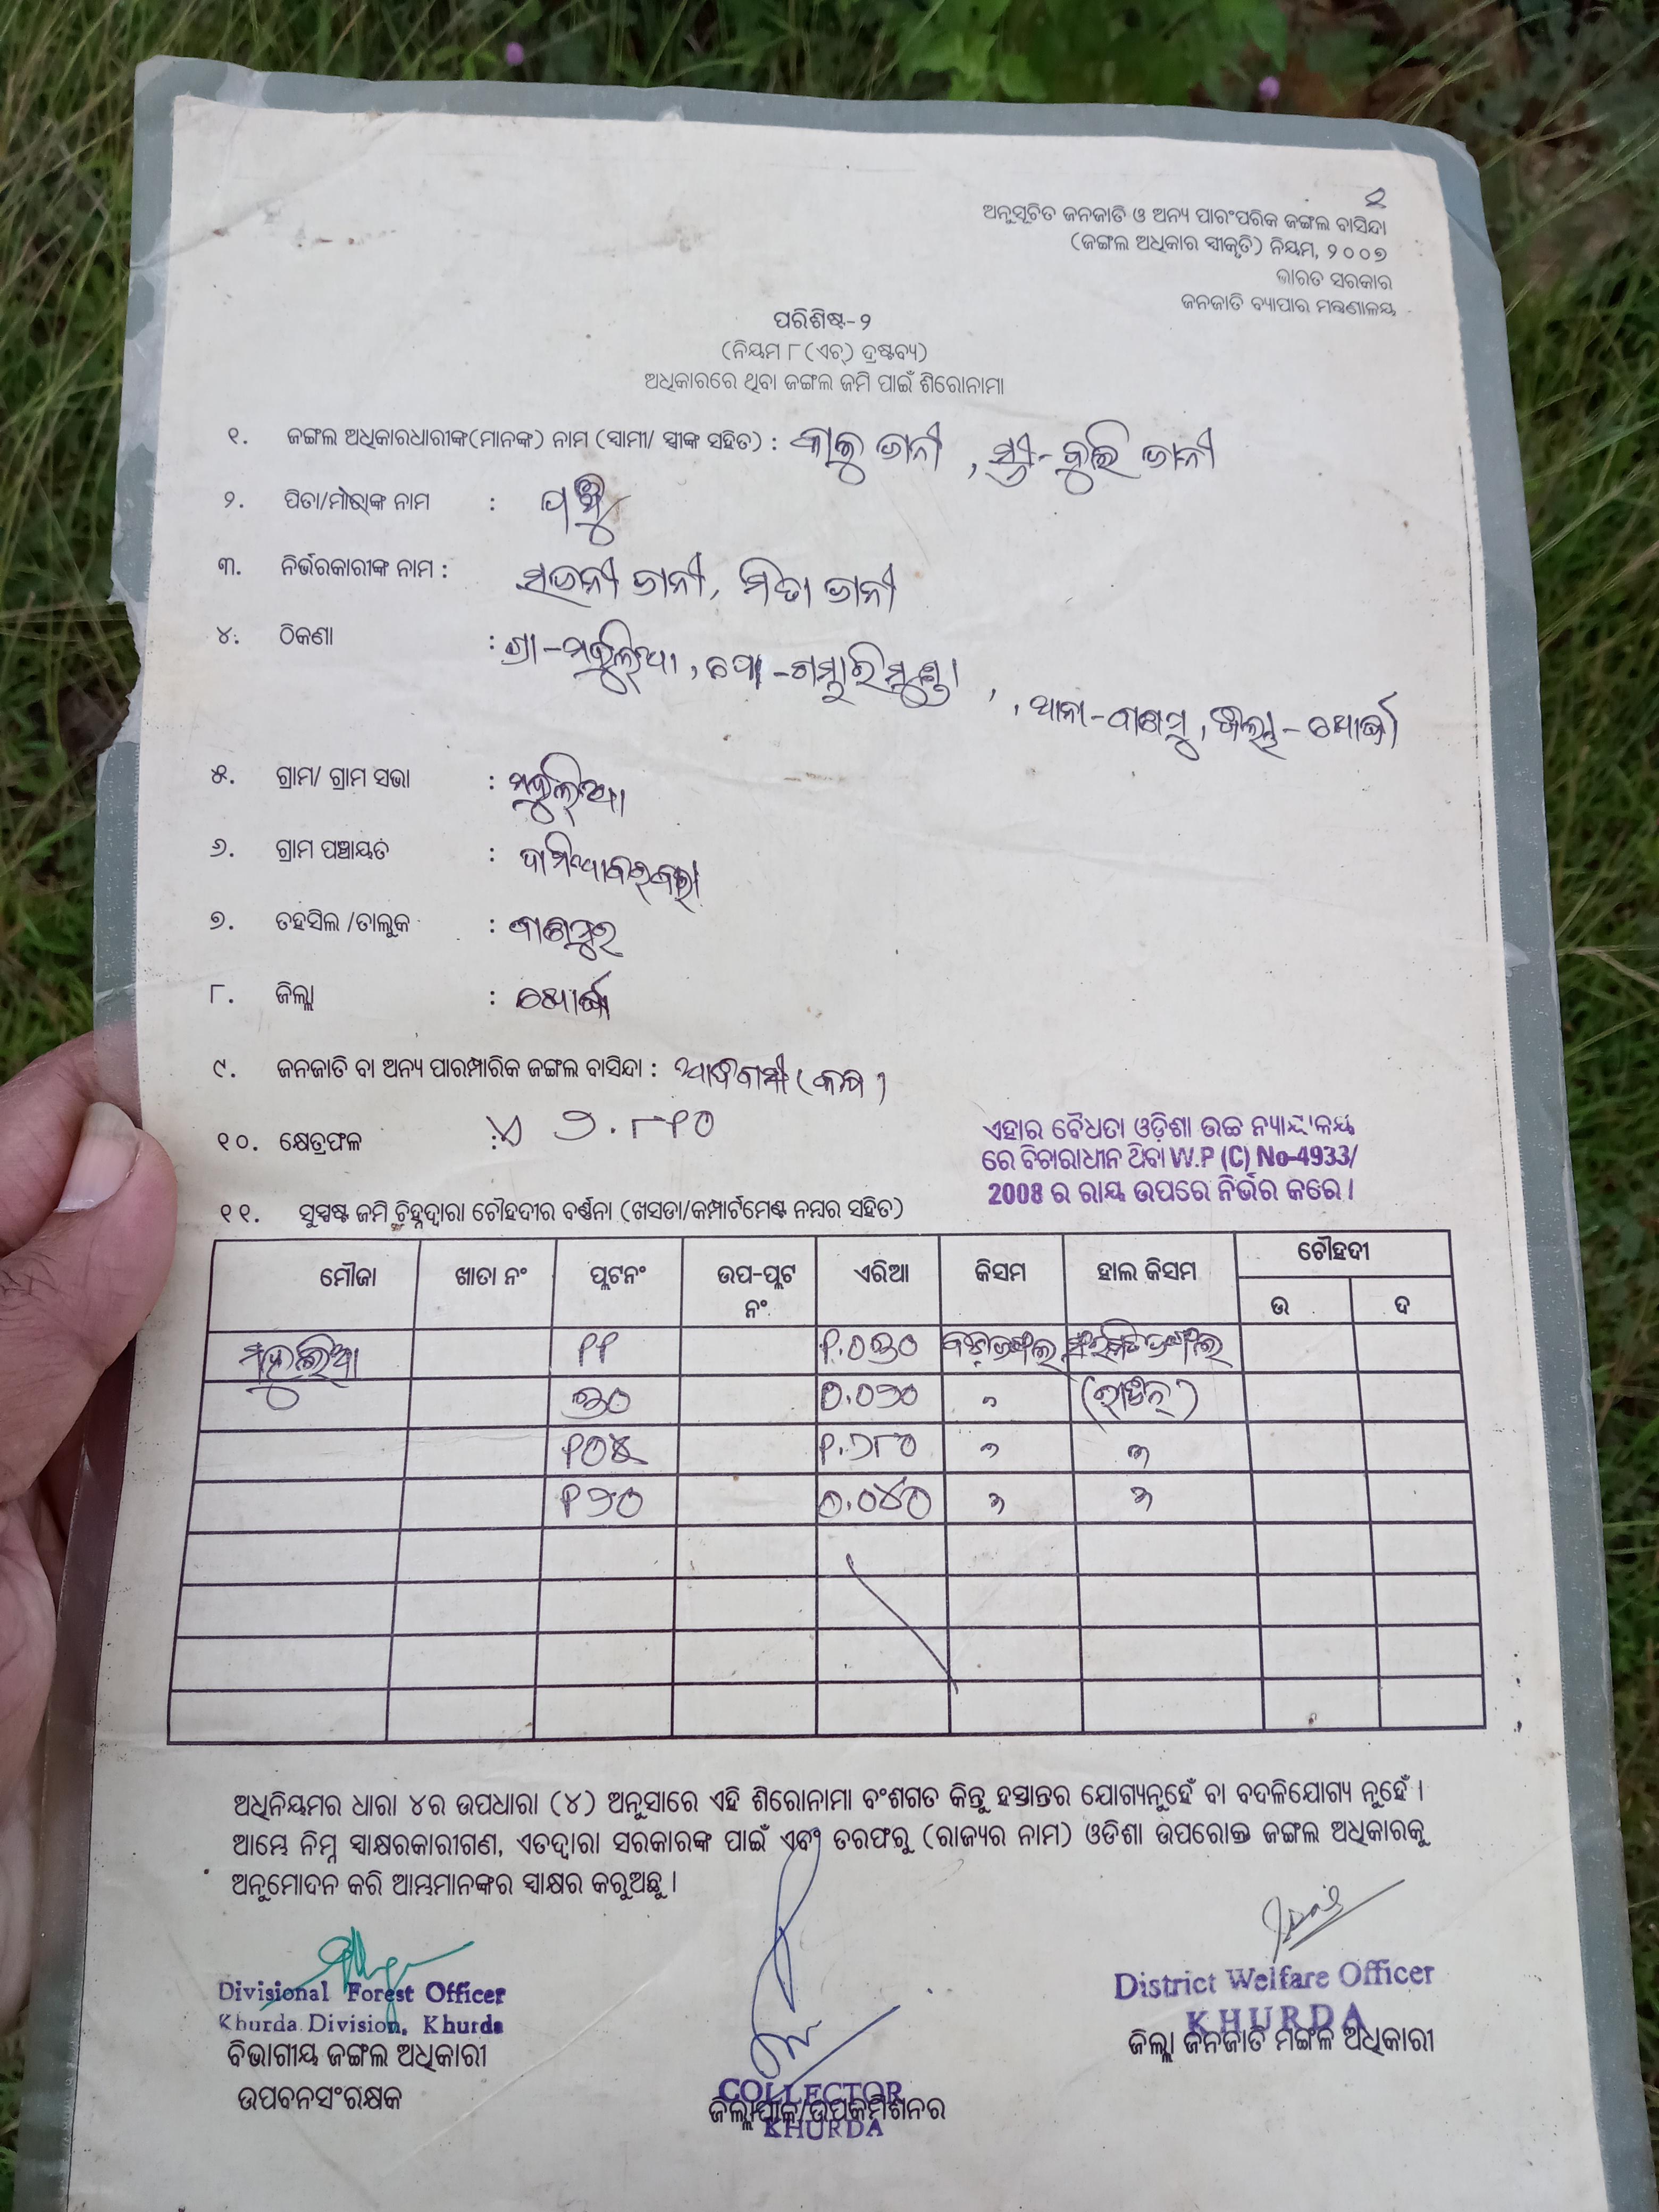 ୨
ଅନୁସୂଚିତ ଜନଜାତି ଓ ଅନ୍ୟ ପାରଂପରିକ ଜଙ୍ଗଲ ବାସିନ୍ଦା
(ଜଙ୍ଗଲ ଅଧିକାର ସ୍ୱୀକୃତି) ନିୟମ, ୨୦୦୭
ଭାରତ ସରକାର
ଜନଜାତି ବ୍ୟାପାର ମନ୍ତ୍ରଣାଳୟ
ପରିଶିଷ୍ଟ-୨
(ନିୟମ ୮(ଏଚ୍) ଦ୍ରଷ୍ଟବ୍ୟ)
ଅଧିକାରରେ ଥିବା ଜଙ୍ଗଲ ଜମି ପାଇଁ ଶିରୋନାମା
୧. ଜଙ୍ଗଲ ଅଧିକାରଧାରୀଙ୍କ(ମାନଙ୍କ) ନାମ (ସ୍ୱାମୀ/ ସ୍ତ୍ରୀଙ୍କ ସହିତ) : ଜାନୀ , ସ୍ତ୍ରୀ- ଜାନୀ
୨. ପିତା/ମାତାଙ୍କ ନାମ :
୩. ନିର୍ଭରକାରୀଙ୍କ ନାମ : ସଜନୀ ଜାନୀ, ମିତା ଜାନୀ
୪. ଠିକଣା : ଗ୍ରା-ମହୁଲିଆ, ପୋ-ଗମ୍ଭାରିମୁଣ୍ଡା, ଥାନା-ବାଣପୁର, ଜିଲ୍ଲା-ଖୋର୍ଦ୍ଧା
୫. ଗ୍ରାମ/ ଗ୍ରାମ ସଭା : ମହୁଲିଆ
୬. ଗ୍ରାମ ପଞ୍ଚାୟତ :
୭. ତହସିଲ /ତାଲୁକ : ବାଣପୁର
୮. ଜିଲ୍ଲା : ଖୋର୍ଦ୍ଧା
୯. ଜନଜାତି ବା ଅନ୍ୟ ପାରମ୍ପାରିକ ଜଙ୍ଗଲ ବାସିନ୍ଦା : ଆଦିବାସୀ (କନ୍ଧ)
୧୦. କ୍ଷେତ୍ରଫଳ : ୨.୮୧୦
ଏହାର ବୈଧତା ଓଡ଼ିଶା ଉଚ୍ଚ ନ୍ୟାୟାଳୟ
ରେ ବିଚାରାଧୀନ ଥିବା W.P (C) No-4933/
2008 ର ରାୟ ଉପରେ ନିର୍ଭର କରେ ।
୧୧. ସୁସ୍ପଷ୍ଟ ଜମି ଚିହ୍ନଦ୍ୱାରା ଚୌହଦୀର ବର୍ଣ୍ଣନା (ଖସଡା/କମ୍ପାର୍ଟମେଣ୍ଟ ନମ୍ବର ସହିତ)
ମୌଜା ଖାତା ନଂ ପ୍ଲଟନଂ ଉପ-ପ୍ଲଟ ନଂ ଏରିଆ କିସମ ହାଲ କିସମ ଚୌହଦୀ
ଉ ଦ
ମହୁଲିଆ ୧୧ ୧.୦୩୦
୩୦ ୦.୦୨୦ "
୧୦୫ ୧.୨୮୦ " "
୧୨୦ ୦.୦୪୦ " "
ଅଧିନିୟମର ଧାରା ୪ର ଉପଧାରା (୪) ଅନୁସାରେ ଏହି ଶିରୋନାମା ବଂଶଗତ କିନ୍ତୁ ହସ୍ତାନ୍ତର ଯୋଗ୍ୟନୁହେଁ ବା ବଦଳିଯୋଗ୍ୟ ନୁହେଁ ।
ଆମ୍ଭେ ନିମ୍ନ ସ୍ୱାକ୍ଷରକାରୀଗଣ, ଏତଦ୍ୱାରା ସରକାରଙ୍କ ପାଇଁ ଏବଂ ତରଫରୁ (ରାଜ୍ୟର ନାମ) ଓଡିଶା ଉପରୋକ୍ତ ଜଙ୍ଗଲ ଅଧିକାରକୁ
ଅନୁମୋଦନ କରି ଆମ୍ଭମାନଙ୍କର ସ୍ୱାକ୍ଷର କରୁଅଛୁ ।
Divisional Forest Officer
Khurda Division, Khurda
ବିଭାଗୀୟ ଜଙ୍ଗଲ ଅଧିକାରୀ
ଉପବନସଂରକ୍ଷକ
COLLECTOR
ଜିଲ୍ଲାପାଳ/ଉପକମିଶନର
KHURDA
District Welfare Officer
KHURDA
ଜିଲ୍ଲା ଜନଜାତି ମଙ୍ଗଳ ଅଧିକାରୀ